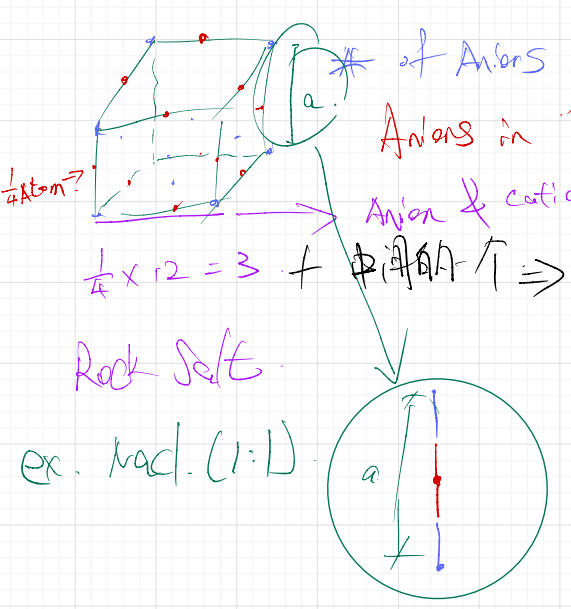 # of Anions
a
Anions in
1/4 Atom?
Anion & catio
1/4 × 12 = 3 + 中间的一个 ⇒
Rock Salt.
ex. Nacl. (1:1).
a